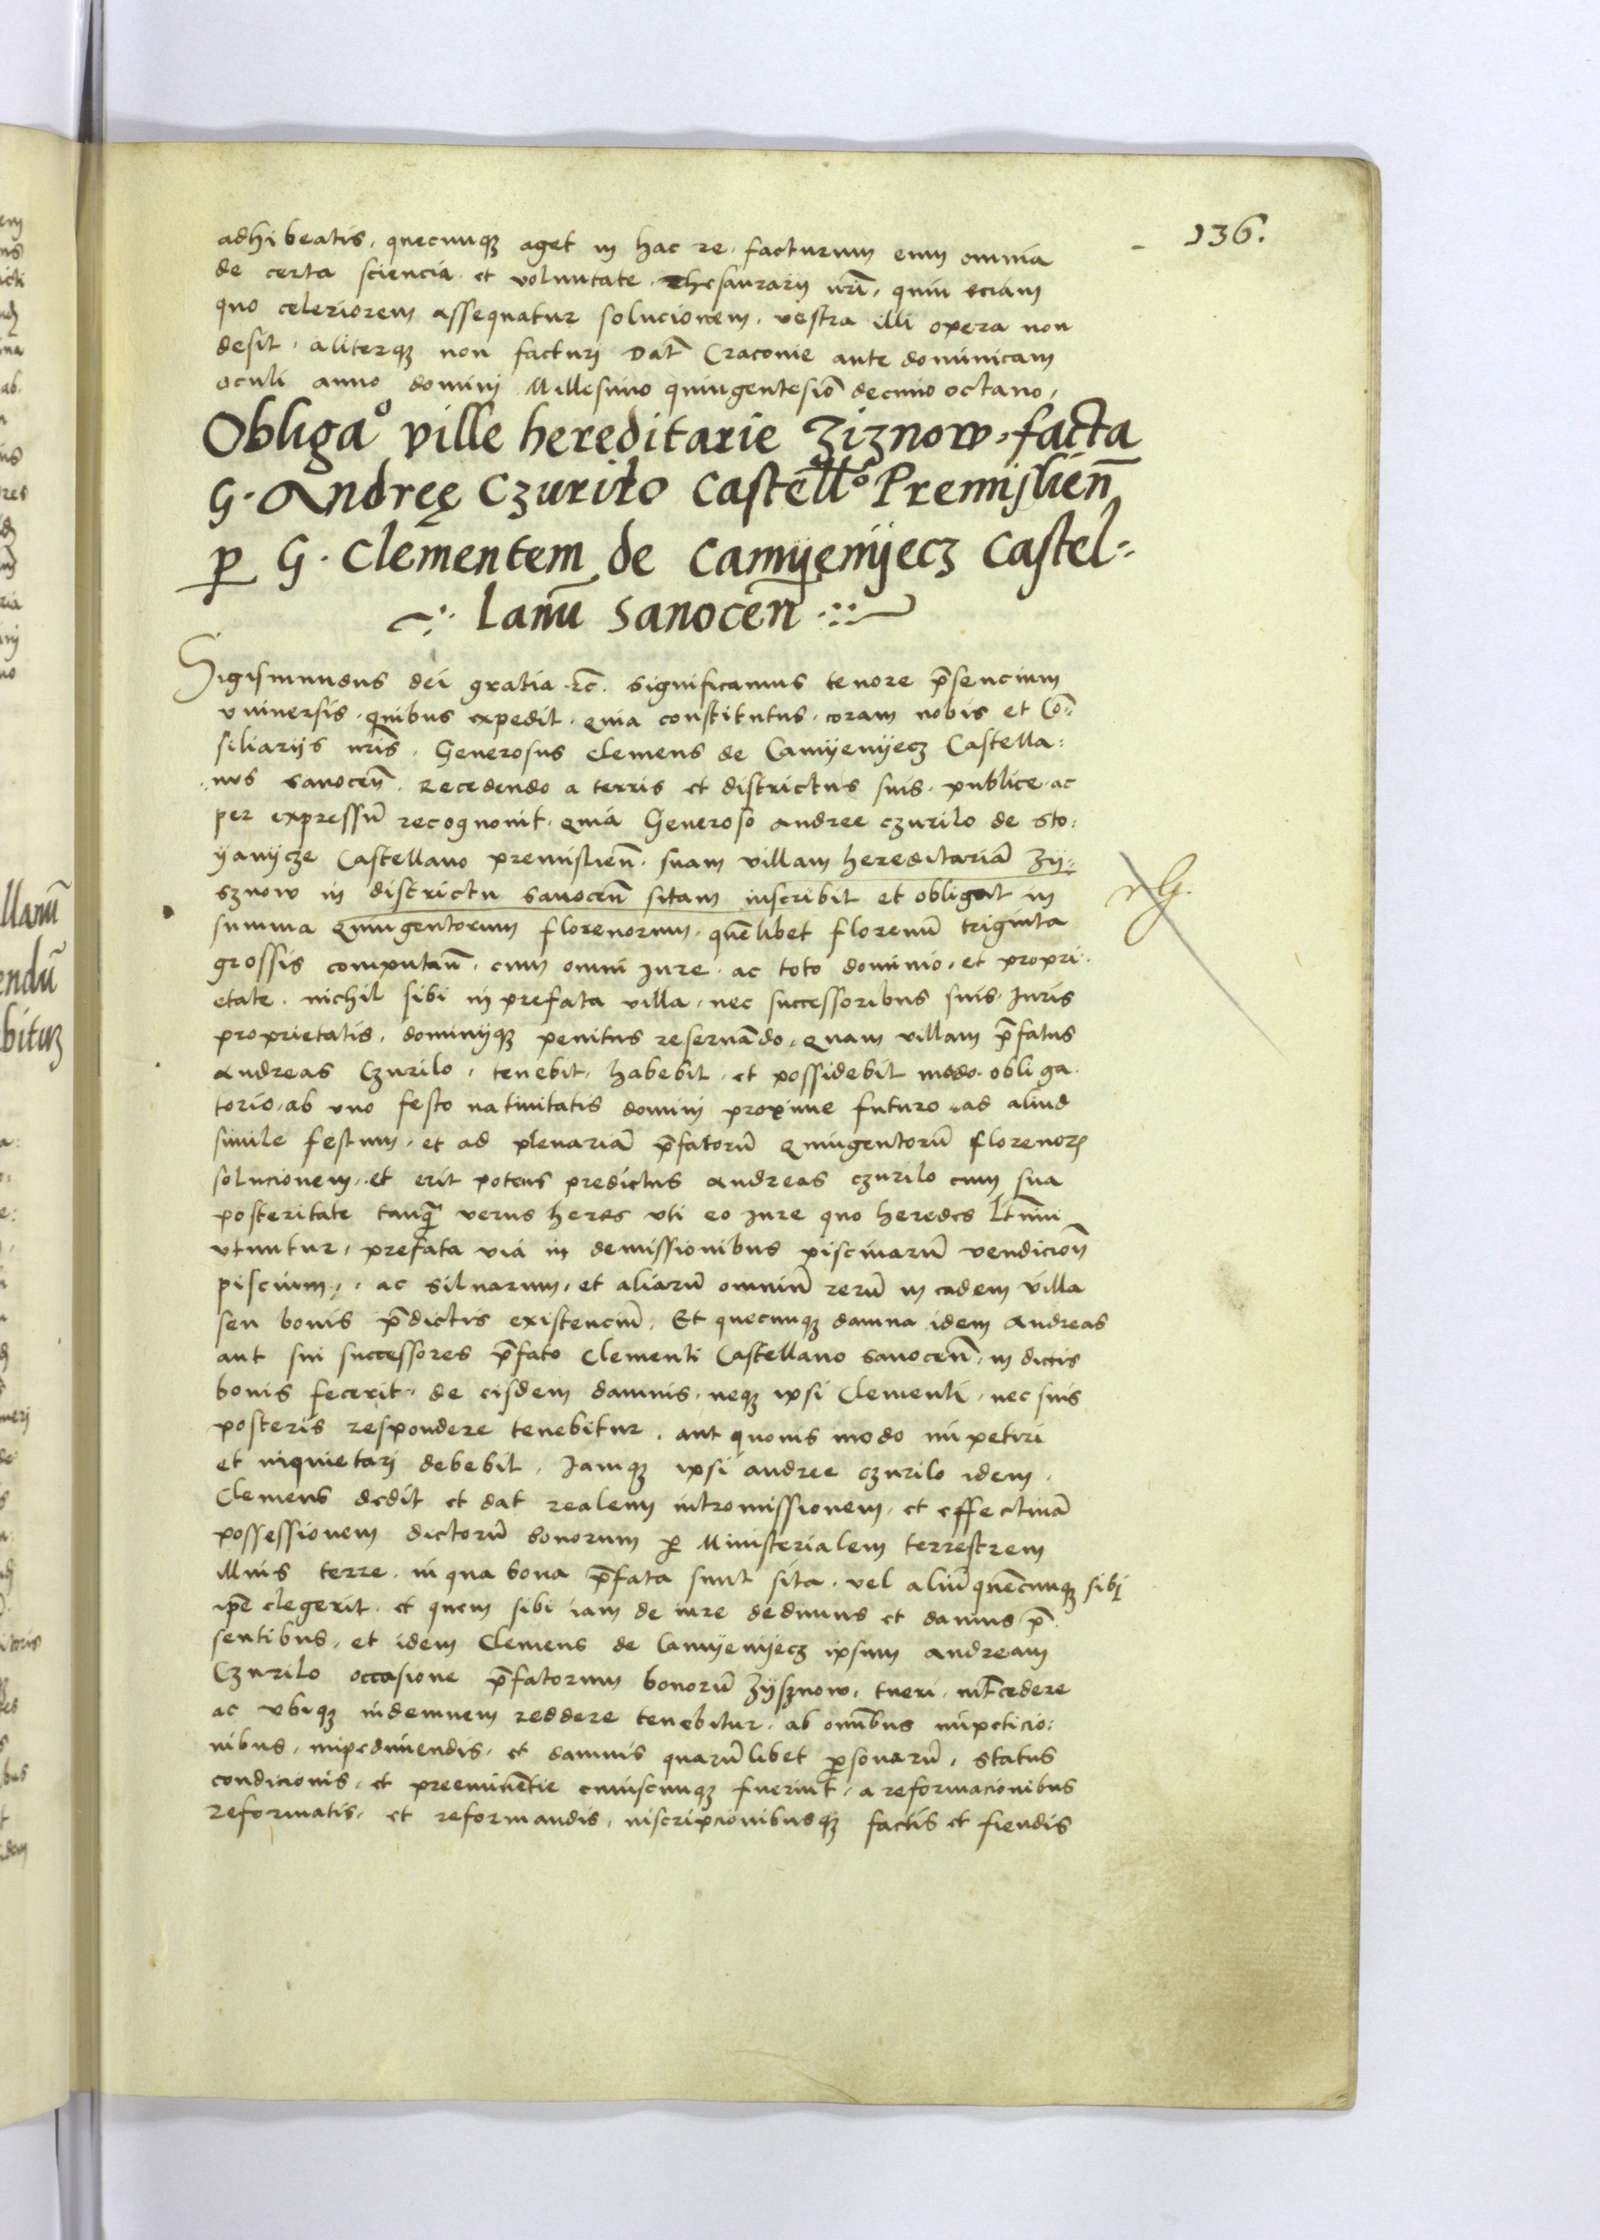 136.
adhibeatis, quecunqȝ aget in hac re. facturum eum omnia
de certa sciencia et voluntate Thesaurarij nr̃i, quin eciam
quo celeriorem assequatur solucionem, vestra illi opera non
desit, aliterqȝ non facturj Dat̃ Cracovie ante dominicam
oculi anno dominj Millesimo quingentesiõ decimo octavo,
Obligaº ville hereditarie Ziznow, facta
G. Andreę Czurilo Castellº Premislień
ꝑ G. Clementem de Camyenyecz Castel=
lanũ Sanoceñ
Sigismundus dei gratia ꝛc̃. Significamus tenore p̃sencium
vniversis, quibus expedit, quia constitutus, coram nobis et Cõ=
siliarijs nr̃is, Generosus Clemens de Camyenyecz Castella=
nus Sanoceñ. Recedendo a terris et districtus suis, publice, ac
per expressũ recognovit, quia Generoso Andree Czurilo de Sto=
yanycze Castellano premislieñ, suam villam hereditariã Zy=
sznow in districtu Sanoceñ sitam inscribit et obligat in
summa Quingentorum florenorum, quẽlibet florenũ triginta
grossis computañ, cum omni Jure, ac toto dominio, et propri
etate, nichil sibi in prefata villa, nec successoribus suis Juris
proprietatis, dominijqȝ penitus reservãdo, Quam villam p̃fatus
Andreas Czurilo, tenebit, habebit, et possidebit modo obliga
torio, ab vno festo nativitatis dominj proxime futuro, ad aliud
simile festum, et ad plenariã p̃fatorũ Quingentorũ florenoꝝ
solucionem, et erit potens predictus Andreas Czurilo cum sua
posteritate tanq̃ verus heres vti eo Jure quo heredes lt̃imi
vtuntur, prefata via in demissionibus piscinarũ vendicioñ
piscium, ac silvarum, et aliarũ omniũ rerũ in eadem villa
seu bonis p̃dictis existenciũ, Et quecunqȝ damna idem Andreas
aut sui successores p̃fato Clementi Castellano Sanoceñ, in dictis
bonis fecerit, de eisdem damnis, neqȝ ipsi Clementi, nec suis
posteris respondere tenebitur, aut quovis modo impetiri
et inquietarj debebit, Jamqȝ ipsi Andree Czurilo idem
Clemens dedit et dat realem intromissionem, et effectivã
possessionem dictorũ bonorum ꝑ Ministerialem terrestrem
illius terre, in qua bona p̃fata sunt sita, vel aliũ quẽcunqȝ sibj
ip̃e elegerit, et quem sibi iam de iure dedimus et damus p̃
sentibus, et idem Clemens de Camyenyecz ipsum Andream
Czurilo occasione p̃fatorum bonorũ Zysznow, tueri, int̃cedere
ac vbiqȝ indemnem reddere tenebitur, ab om̃ibus impeticio=
nibus, impedimendis, et damnis quarũlibet ꝑsonarũ, status
condicionis, et preeminẽtie cuiuscunqȝ fuerint, a reformacionibus
reformatis, et reformandis, inscripcionibusqȝ factis et fiendis
llanũ
endũ
bituȝ